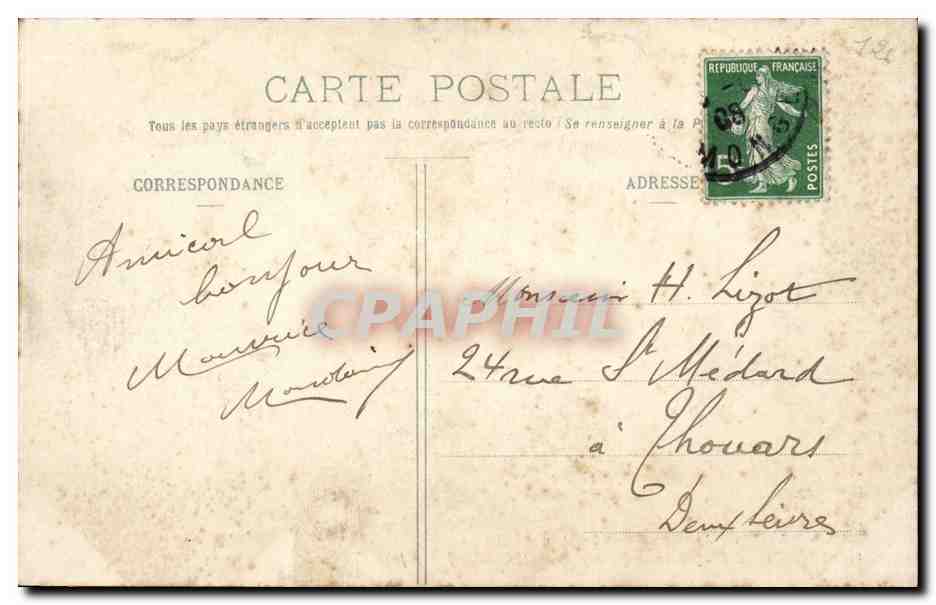 CARTE POSTALE
Tous les pays étrangers n'acceptent pas la correspondance au recto (Se renseigner à la P
CORRESPONDANCE
ADRESSE
REPUBLIQUE FRANÇAISE
POSTES
5
08
Amical
bonjour
Maurice
Monsieur H. Lizot
24 rue St Médard
à Thouars
Deux Sèvres
CPAPHIL